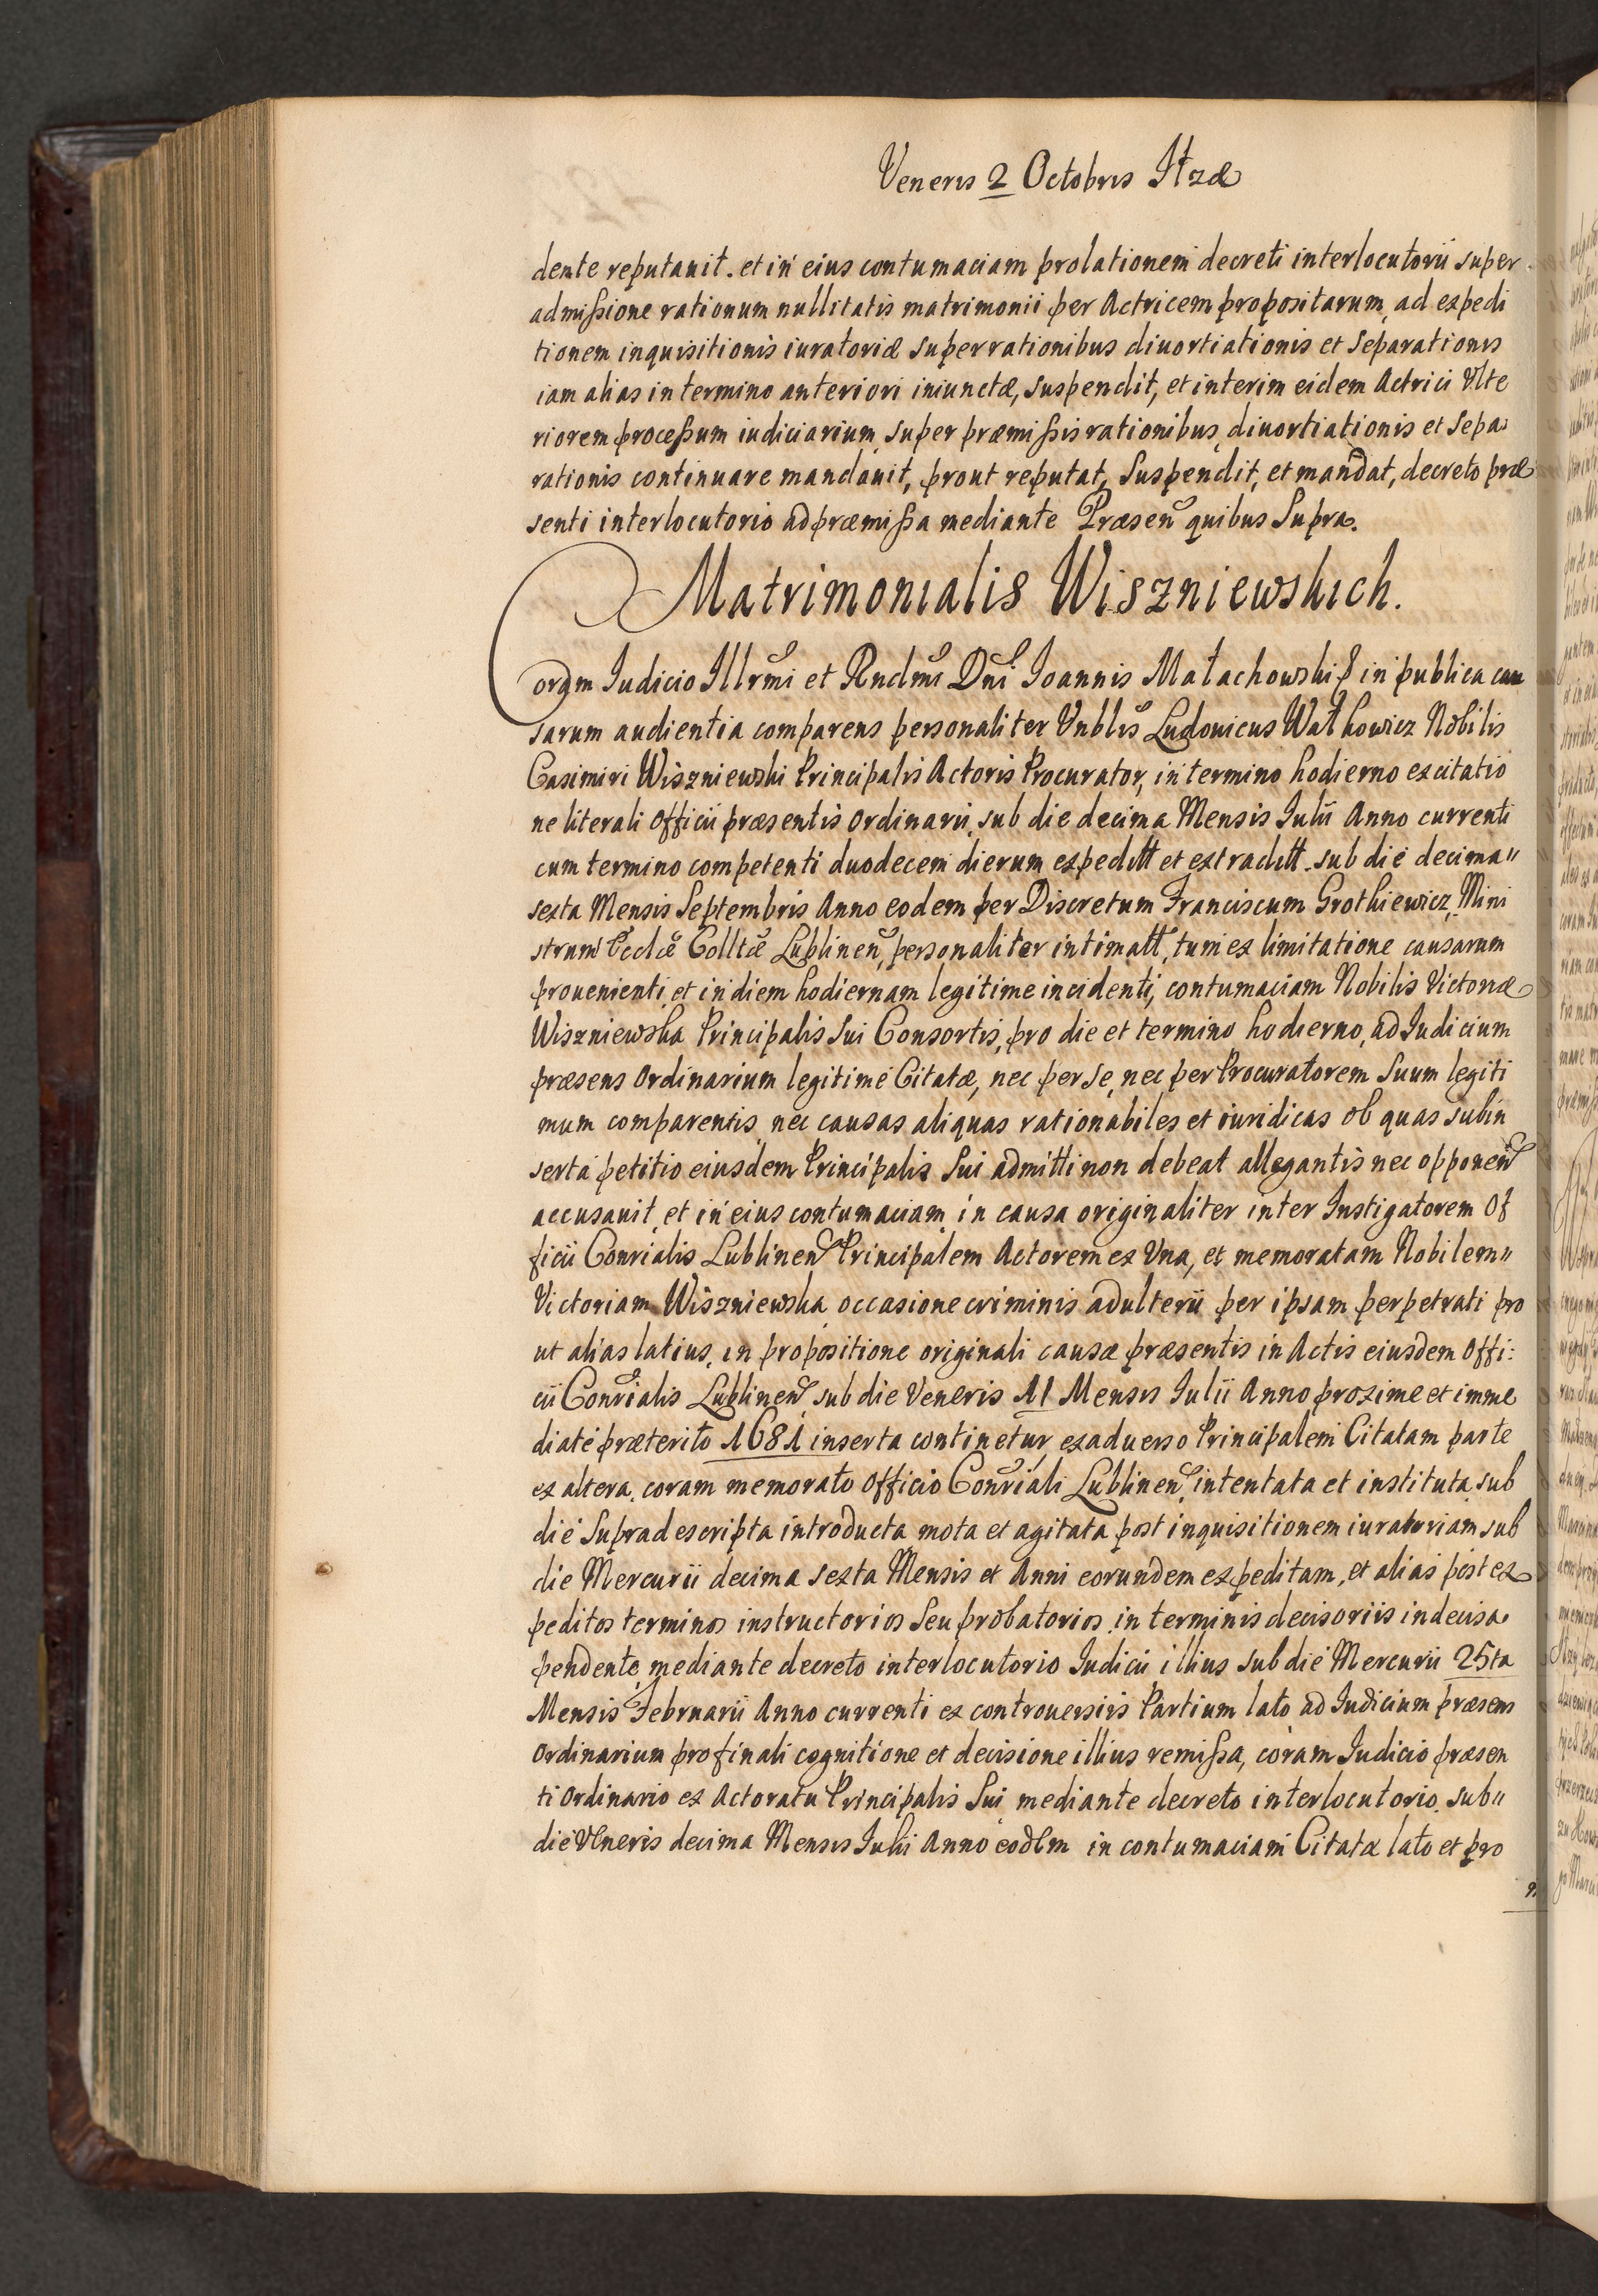 Veneris 2 Octobris Itzæ
dente reputauit. et in eius contumaciam prolationem decreti interlocutorii super
admissione rationum nullitatis matrimonii per Actricem propositarum, ad expedi
tionem inquisitionis iuratoriæ super rationibus diuortiationis et Separationis
iam alias in termino anteriori iniunctæ, suspendit, et interim eidem Actrici Ulte
riorem processum iudiciarium, super præmissis rationibus, diuortiationis et Sepa:
rationis continuare mandauit, prout reputat, Suspendit, et mandat, decreto præ
senti interlocutorio ad præmissa mediante Præsen quibus Supra.
Matrimonialis Wiszniewskich.
Coram Iudicio Illrmi et Rndmi Dni Ioannis Małachowski in publica cau
sarum audientia comparens personaliter Vnblis Ludouicus Wałkowicz Nobilis
Casimiri Wiszniewski Principalis Actoris Procurator, in termino hodierno ex citatio
ne literali Officii præsentis Ordinarii, sub die decima Mensis Iulii Anno currenti
cum termino competenti duodecem dierum expeditt et extraditt. sub die decima"
sexta Mensis Septembris Anno eodem per Discretum Franciscum Grothiewicz, Mini
strum Eccliæ Colltæ Lublinen, personaliter intimatt, tum ex limitatione causarum
prouenienti, et in diem hodiernam legitime incidenti, contumaciam Nobilis Victoriæ
Wiszniewska Principalis Sui Consortis, pro die et termino hodierno, ad Iudicium
præsens Ordinarium legitime Citatæ, nec per se, nec per Procuratorem Suum legiti
mum comparentis, nec causas aliquas rationabiles et iuridicas ob quas subin
serta petitio eiusdem Principalis Sui admitti non debeat allegantis nec opponen
accusauit, et in eius contumaciam in causa originaliter inter Instigatorem Of
ficiiConrialis Lublinen Principalem Actorem ex Vna, et memoratam Nobilem"
Victoriam Wiszniewska occasione criminis adulterii per ipsam perpetrati pro
ut alias latius, in propositione originali causæ præsentis in Actis eiusdem Offi:
cii Conrialis Lublinen, sub die Veneris 11 Mensis Iulii Anno proxime et imme
diate præterito 1681 inserta continetur, ex aduerso Principalem Citatam parte
ex altera, coram memorato Officio Conriali Lublinen, intentata et instituta, sub
die Supradescripta introducta mota et agitata post inquisitionem iuratoriam sub
die Mercurii decima sexta Mensis et Anni eorundem expeditam, et alias post ex
peditos terminos instructorios Seu probatorios in terminis decisoriis indecisa
pendente, mediante decreto interlocutorio Iudicii illius sub die Mercurii 25ta
Mensis Februarii Anno currenti ex controuersiis Partium lato ad Iudicium præsens
Ordinarium pro finali cognitione et decisione illius remissa, coram Iudicio præsen
ti Ordinario ex Actoratu Principalis Sui mediante decreto interlocutorio, sub"
die Veneris decima Mensis Iulii Anno eodem in contumaciam Citatæ lato et pro